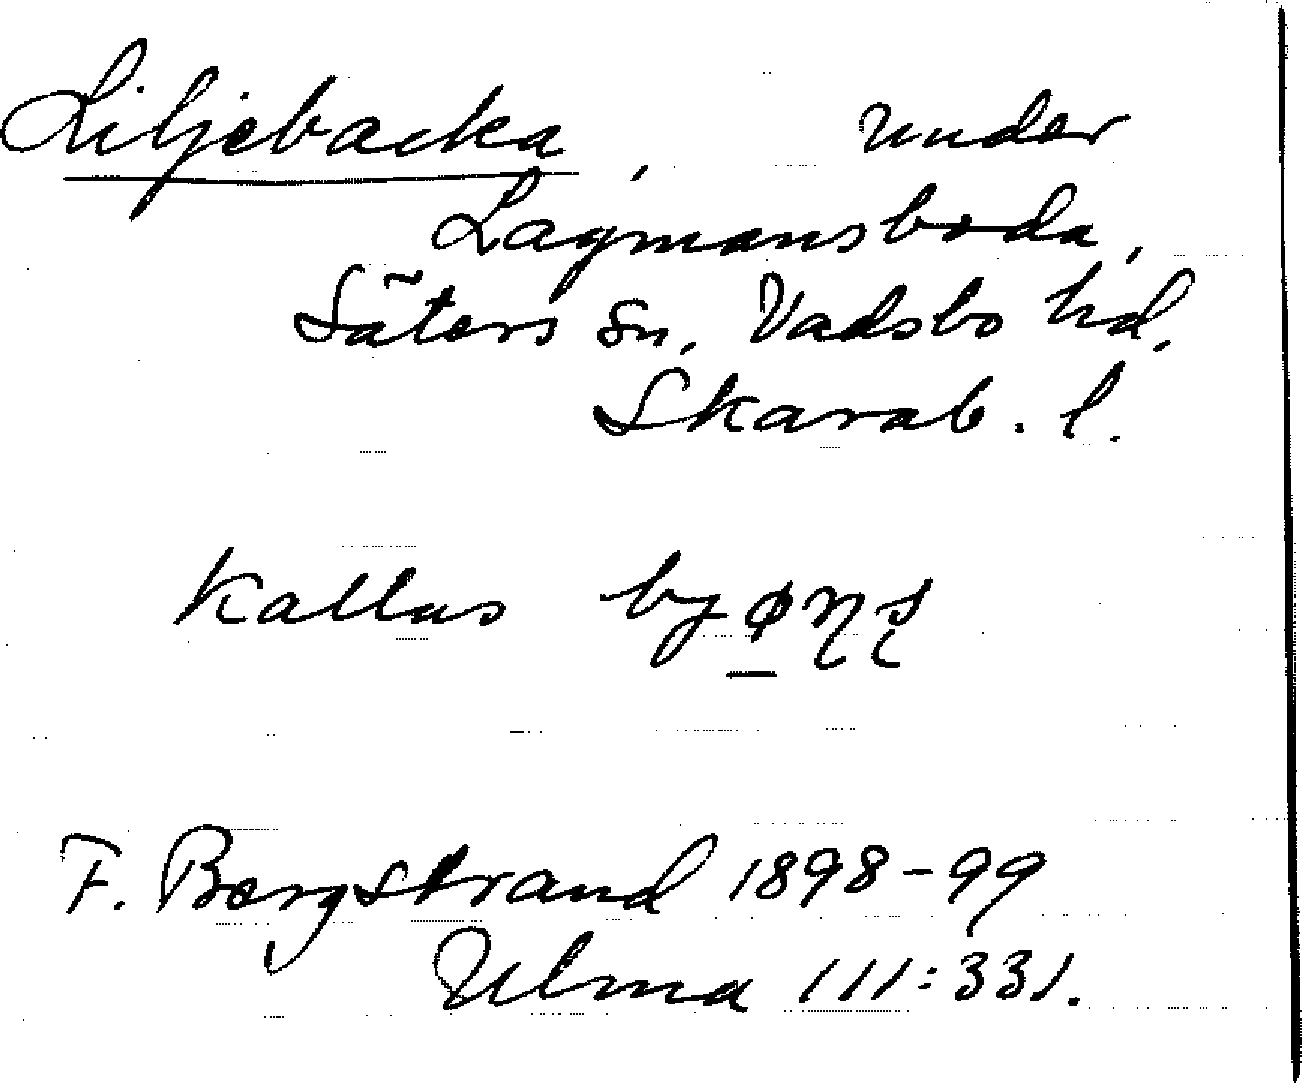 Liljebacka, under
Lagmansboda,
Säters sn, Vadsbo hd,
Skarab. l.
Kallas
F. Bergstrand 1898-99
Ulma 111:331.